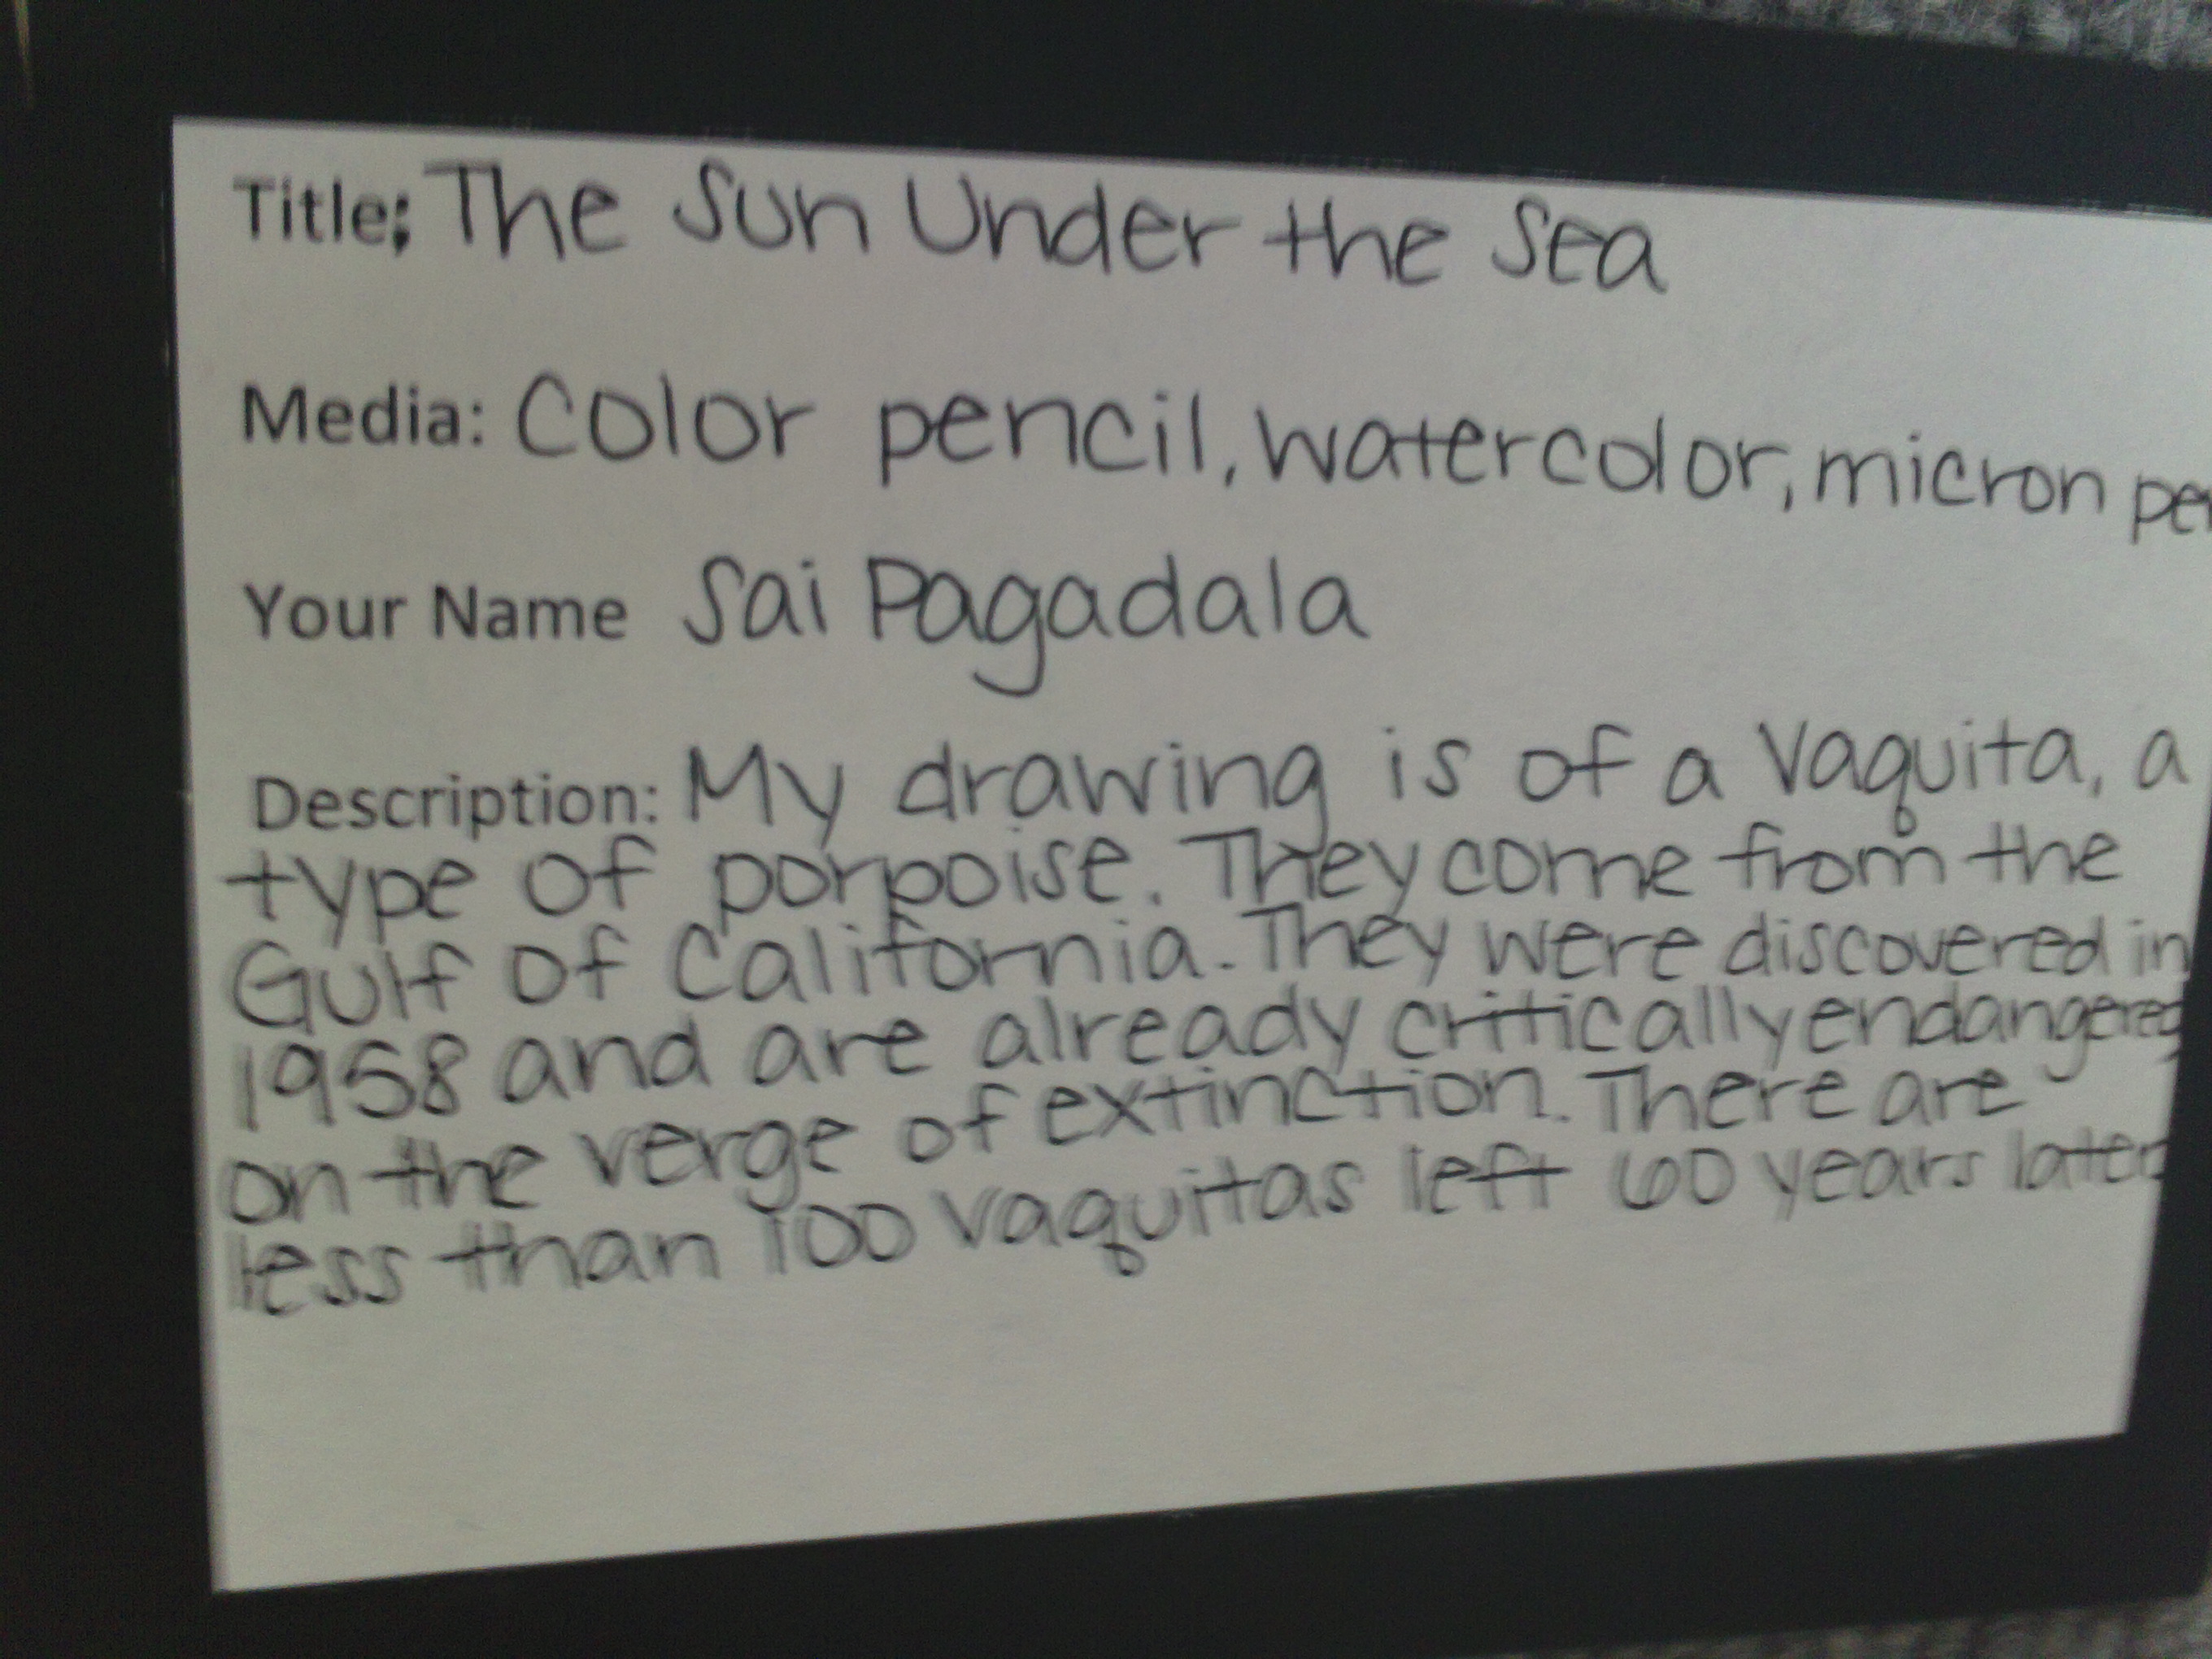 Title: The Sun Under the Sea
Media: Color pencil, watercolor, micron pe
Your Name Sai Pagadala
Description: My drawing is of a Vaquita, a
type of porpoise. They come from the
Gulf of California. They were discovered in
1958 and are already critically endangered
on the verge of extinction. There are
less than 100 vaquitas left 60 years later